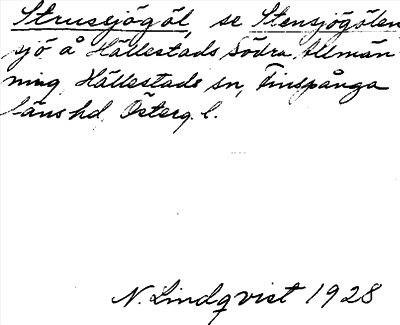 Strussjögöl, se Stensjögölen
sjö å Hällestads Södra Allmän-
ning Hällestads sn, Finspånga
läns hd Österg. l.
N. Lindqvist 1928